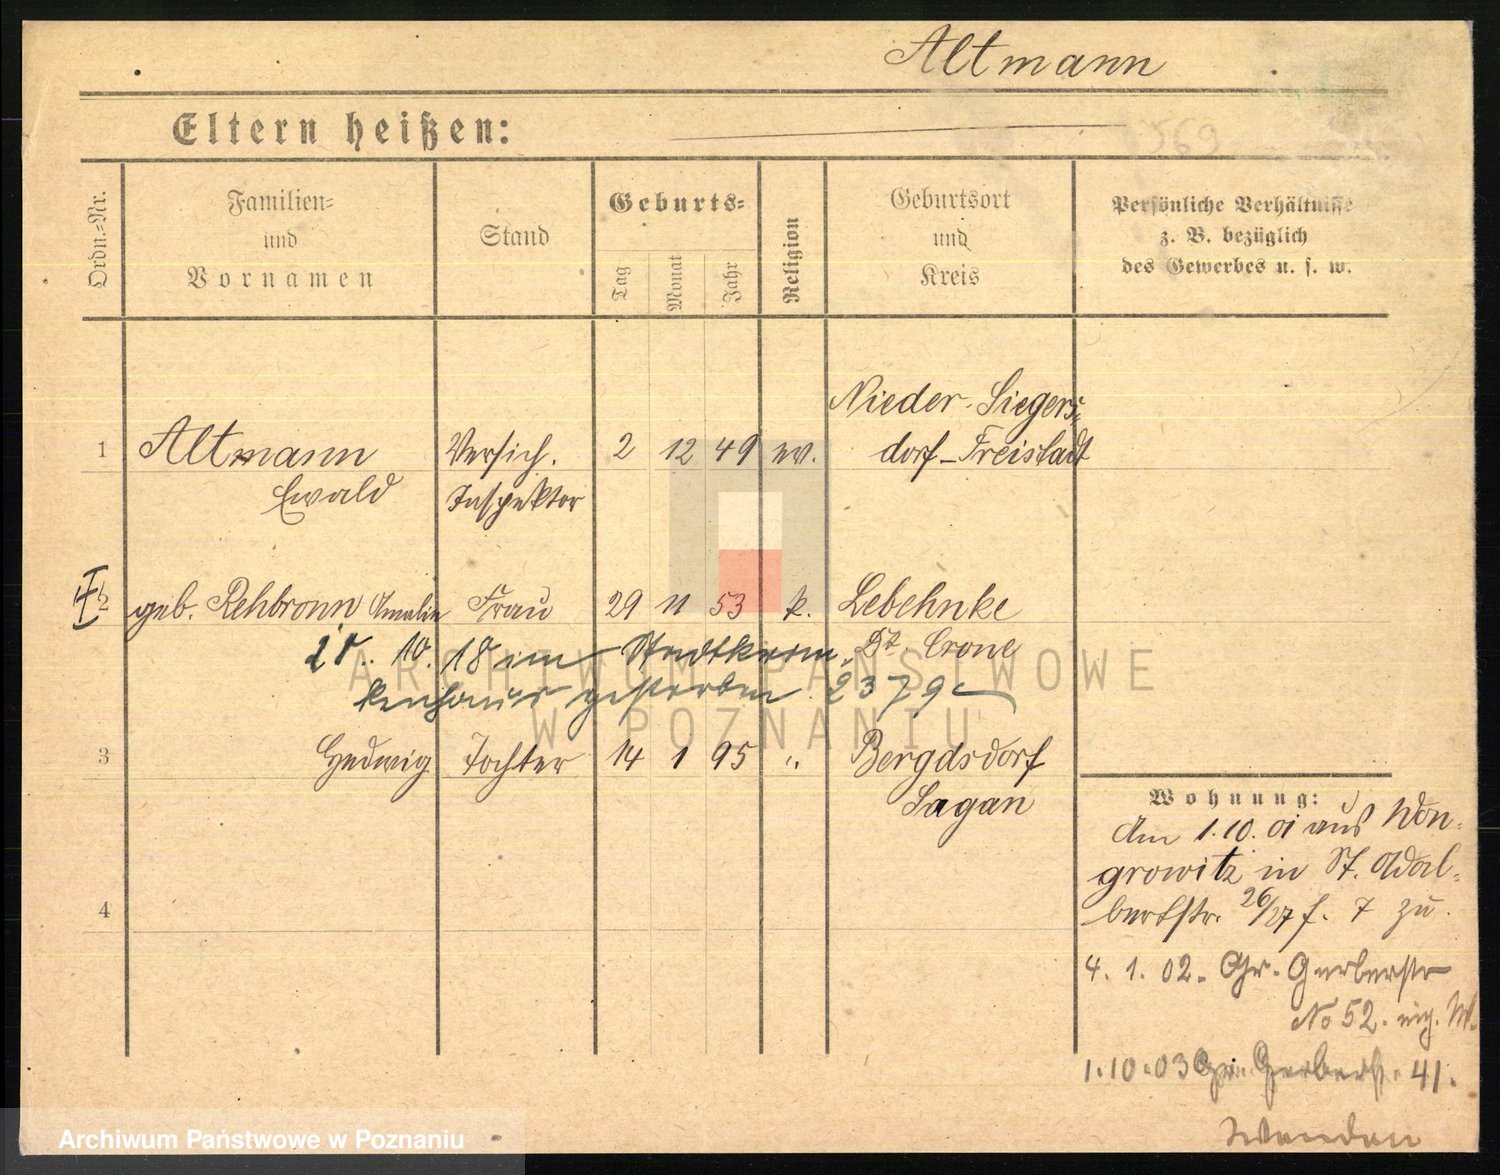 Altmann
Eltern heißen:
569
Ordn.-Nr.
Familien-
und
Vornamen
Stand
Geburts-
Tag
Monat
Jahr
Religion
Geburtsort
und
Kreis
Persönliche Verhältnisse
z. B. bezüglich
des Gewerbes u. s. w.
1 Altmann Versich. 2 12 49 ev. Nieder-Siegers-
Ewald Inspektor dorf-Freistadt
2 geb. Rehbronn Amalie Frau 29 11 53 k. Lebehnke
Dt. Crone
10. 18 im Stadtkran-
kenhaus gestorben 2379
3 Hedwig Tochter 14 1 95 " Bergdsdorf
Sagan
4
Wohnung:
Am 1.10.01 aus Won-
growitz in St. Adal-
bertstr. 26/27 f. 7 zu.
4. 1. 02. Gr. Gerberstr
No 52. eig. W.
1.10.03 Gr. Gerberst. 41.
ARCHIWUM PAŃSTWOWE
W POZNANIU
Archiwum Państwowe w Poznaniu